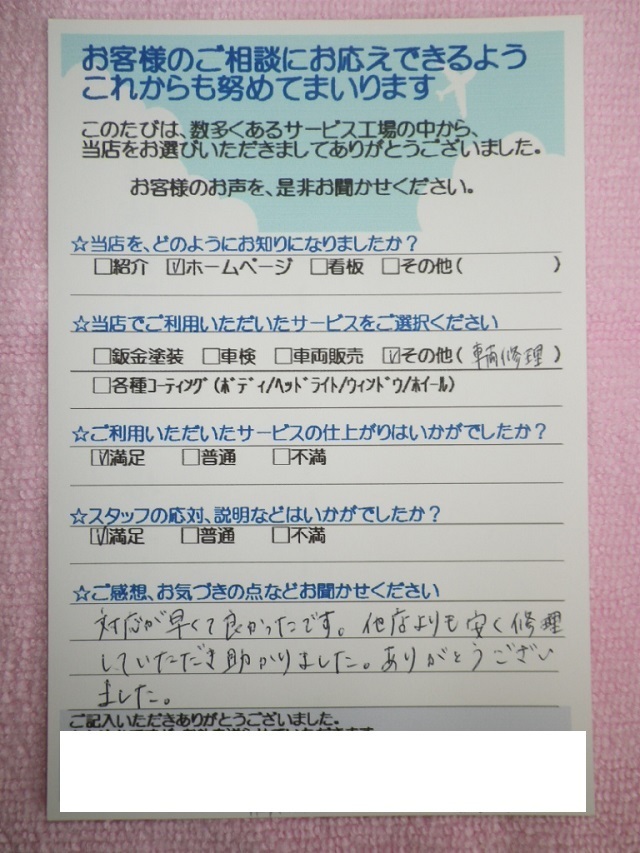 お客様のご相談にお応えできるよう
これからも努めてまいります
このたびは、数多くあるサービス工場の中から、
当店をお選びいただきましてありがとうございました。
お客様のお声を、是非お聞かせください。
☆当店を、どのようにお知りになりましたか？
□紹介 ☑ホームページ □看板 □その他( )
☆当店でご利用いただいたサービスをご選択ください
□鈑金塗装 □車検 □車両販売 ☑その他( 車輌修理 )
□各種ｺｰﾃｨﾝｸﾞ(ﾎﾞﾃﾞｨ/ﾍｯﾄﾞﾗｲﾄ/ｳｨﾝﾄﾞｳ/ﾎｲｰﾙ)
☆ご利用いただいたサービスの仕上がりはいかがでしたか？
☑満足 □普通 □不満
☆スタッフの応対、説明などはいかがでしたか？
☑満足 □普通 □不満
☆ご感想、お気づきの点などお聞かせください
対応が早くて良かったです。他店よりも安く修理
していただき助かりました。ありがとうござい
ました。
ご記入いただきありがとうございました。